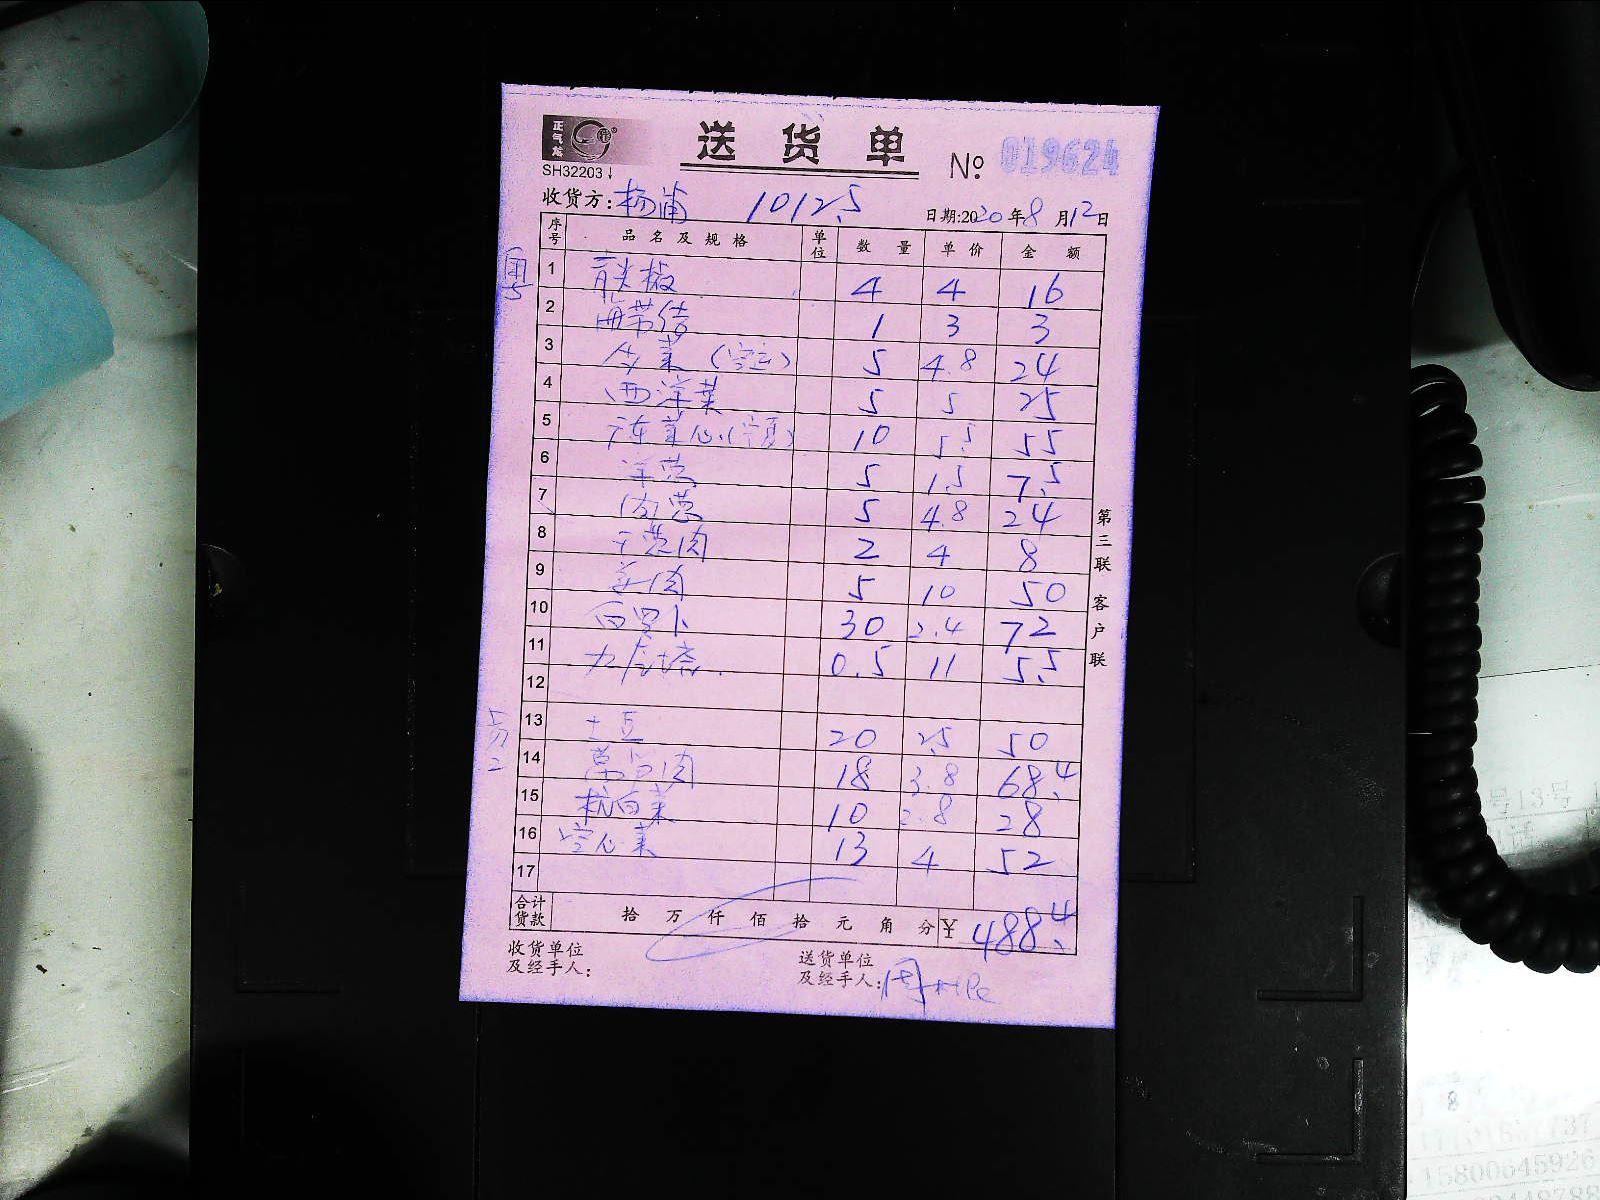 正气龙
送货单
№ 019624
SH32203
收货方: 杨浦 1012.5
日期:2020年8月12日
序号 品名及规格 单位 数量 单价 金额
粤5
1 青尖椒 4 4 16
2 海带结 1 3 3
3 生菜 5 4.8 24
4 西洋菜 5 5 25
5 广东菜心(宁夏) 10 5.5 55
6 洋葱 5 1.5 7.5
7 葱 5 4.8 24
8 干葱肉 2 4 8
9 姜肉 5 10 50
10 白罗卜 30 2.4 72
11 九层塔 0.5 11 5.5
12
13 土豆 20 2.5 50
14 莴笋肉 18 3.8 68.4
15 杭白菜 10 2.8 28
16 空心菜 13 4 52
17
合计货款 拾 万 仟 佰 拾 元 角 分 ¥ 488.4
收货单位及经手人:
送货单位及经手人: 周
第三联 客户联
号13号
15800645926